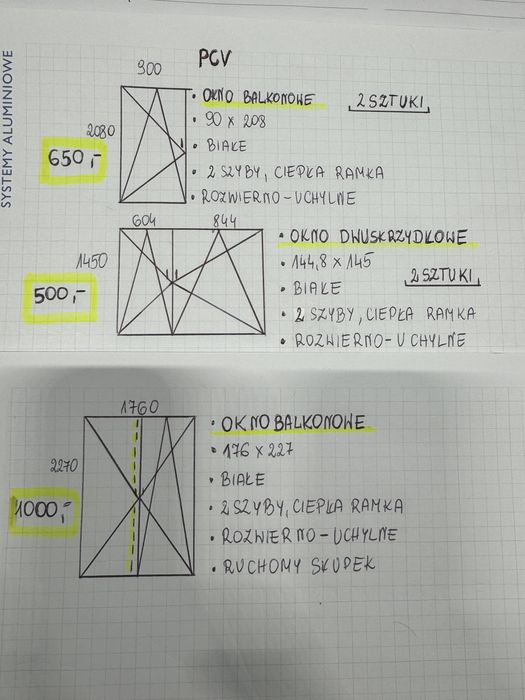 SYSTEMY ALUMINIOWE
PCV
900
2080
650,-
• OKNO BALKONOWE
2 SZTUKI
• 90 x 208
• BIAŁE
• 2 SZYBY, CIEPŁA RAMKA
• ROZWIERNO-UCHYLNE
604 844
1450
500,-
• OKNO DWUSKRZYDŁOWE
• 144,8 x 145
2 SZTUKI
• BIAŁE
• 2 SZYBY, CIEPŁA RAMKA
• ROZWIERNO-UCHYLNE
1760
2270
1000,-
• OKNO BALKONOWE
• 176 x 227
• BIAŁE
• 2 SZYBY, CIEPŁA RAMKA
• ROZWIERNO-UCHYLNE
• RUCHOMY SŁUPEK